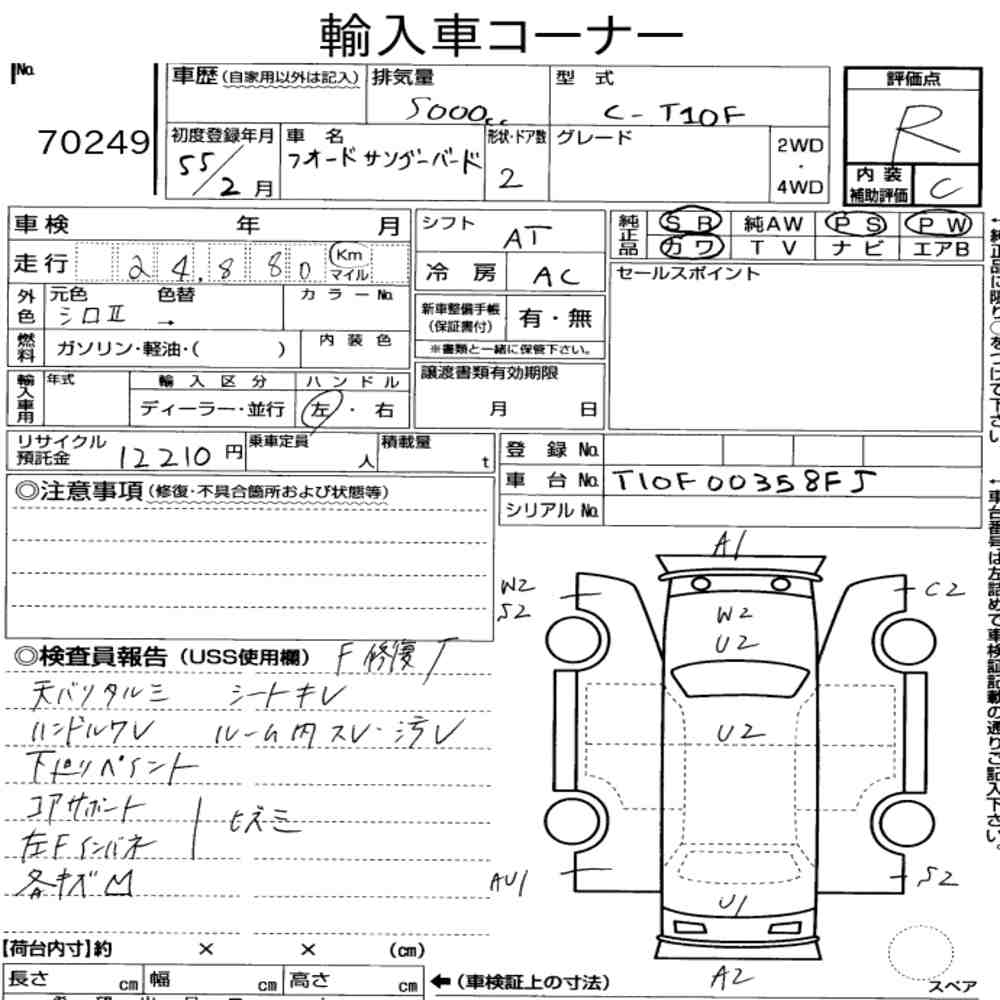 輸入車コーナー
No.
70249
車歴(自家用以外は記入)
排気量
5000cc
型 式
C-T10F
評価点
R
初度登録年月
55/2月
車 名
フォード サンダーバード
形状・ドア数
2
グレード
2WD
・
4WD
内 装
補助評価
C
車検 年 月
シフト
AT
純正品
SR 純AW PS PW
カワ TV ナビ エアB
走行
24,880
Km
マイル
冷 房
AC
セールスポイント
外色
元色 色替
カラーNo.
シロII →
新車整備手帳
(保証書付)
有・無
※書類と一緒に保管下さい。
燃料
ガソリン・軽油・( )
内 装 色
輸入車用
年式
輸 入 区 分
ハ ン ド ル
ディーラー・並行
左・右
譲渡書類有効期限
月 日
リサイクル
預託金
12210円
乗車定員
人
積載量
t
登 録 No.
車 台 No.
T10F00358FJ
シリアルNo.
◎注意事項(修復・不具合箇所および状態等)
◎検査員報告(USS使用欄)
F修復
天バリタルミ シートキレ
ハンドルワレ ルーム内スレ・汚レ
下廻りペイント
コアサポート
左Fインパネ
ヒズミ
各キズM
A1
W2
S2
C2
W2
U2
U2
AU1
S2
U1
A2
スペア
【荷台内寸】約 × × (cm)
長さ cm 幅 cm 高さ cm
←(車検証上の寸法)
←純正品に限り○をつけて下さい。
←車台番号は左詰めで車検証記載の通りご記入下さい。